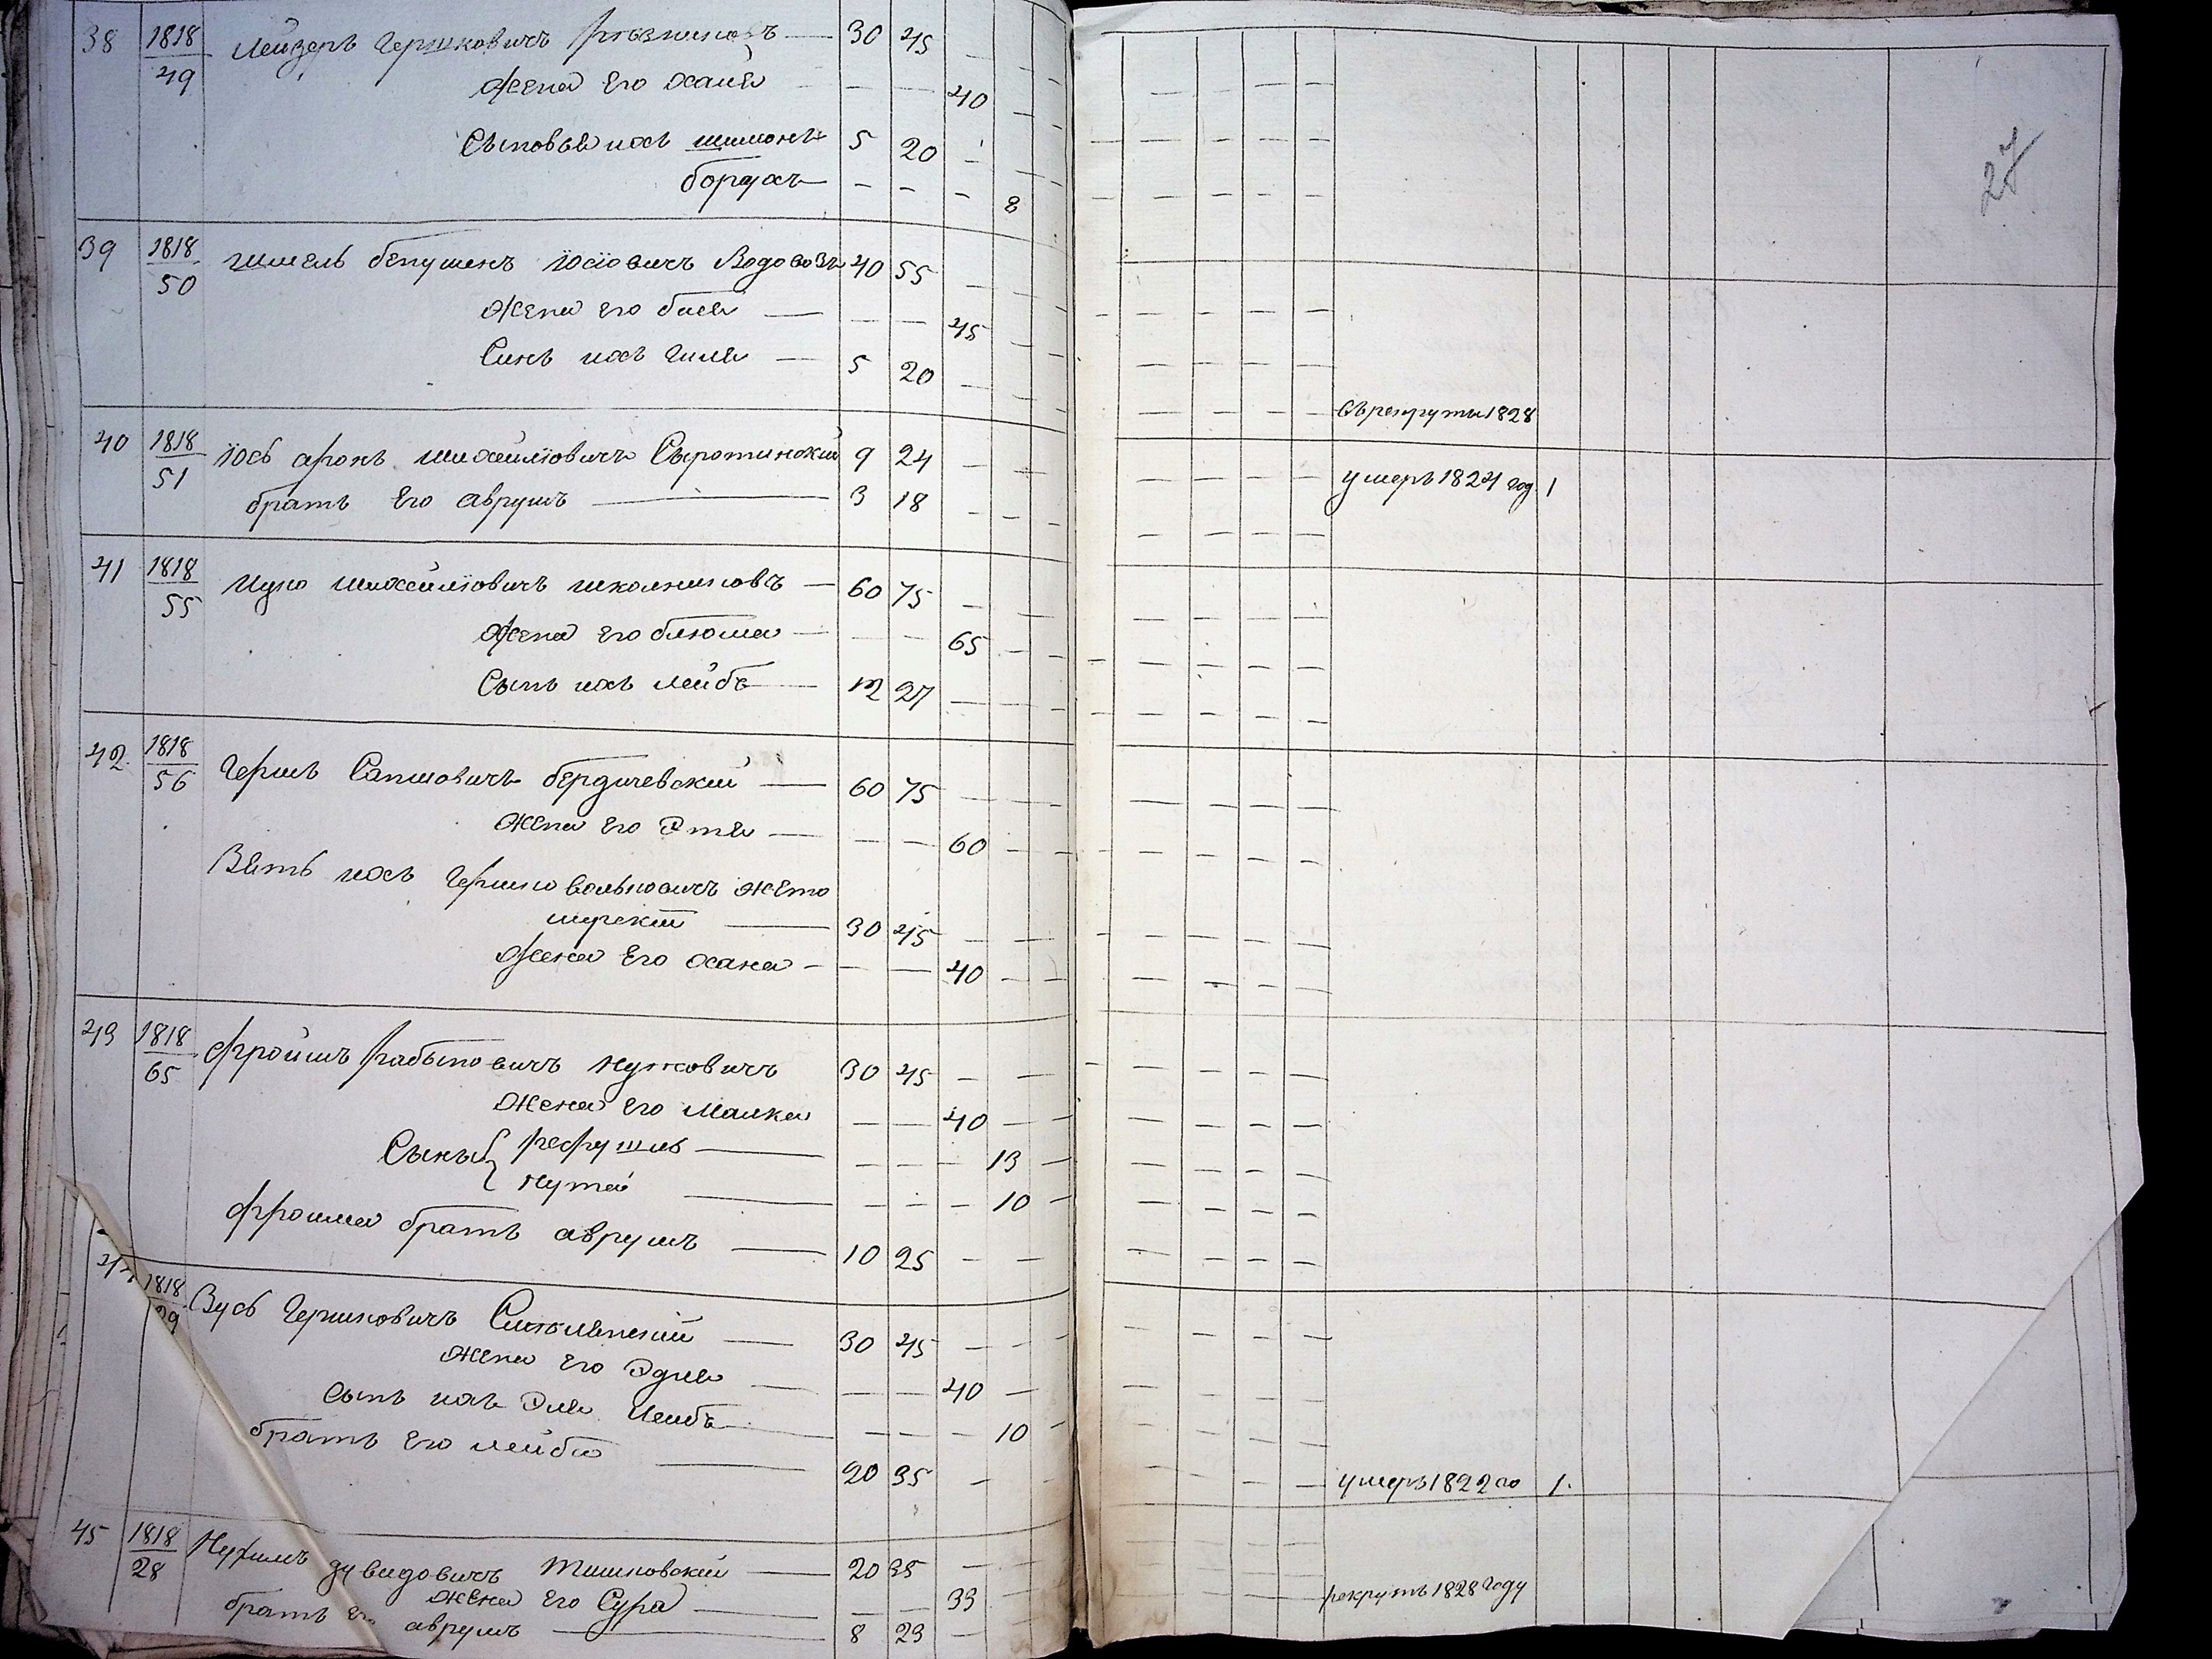 38 1818/49 Лейзеръ Гершковичъ Рѣзниковъ 30 45
Жена Его Хаия 40
Сыновья ихъ шимонъ 5 20
борухъ 8
39 1818/50 шмель Іосіовичъ Водовозъ 40 55
Жена его бася 45
Синъ ихъ 5 20
въ рекруты 1828
40 1818/51 Іось аронъ михейліовичъ Сыротинскій 9 24
умеръ 1824 год. 1
братъ Его аврумъ 3 18
41 1818/55 Ицко михейліовичъ школниковъ 60 75
Жена Его блюма 65
Сынъ ихъ лейбъ 12 27
42 1818/56 Гершъ Сапшовичъ бердичевскій 60 75
Жена его Этя 60
Зять ихъ Гершко вольковичъ жито
мирскій 30 45
Жена Его хана 40
43 1818/65 Фроимъ нутковичъ 30 45
Жена Его малка 40
Сыны 13
Нутей 10
Фроима братъ аврумъ 10 25
44 1818/29 Зусь Гершковичъ 30 45
Жена Его Эдля 40
Сынъ ихъ Эля Лейбъ 10
братъ Его лейба 20 35
умеръ 1822 го 1.
45 1818/28 Нухимъ дувидовичъ 20 35
Жена Его Сура 33
братъ Его аврумъ 8 23
рекрутъ 1828 году
27